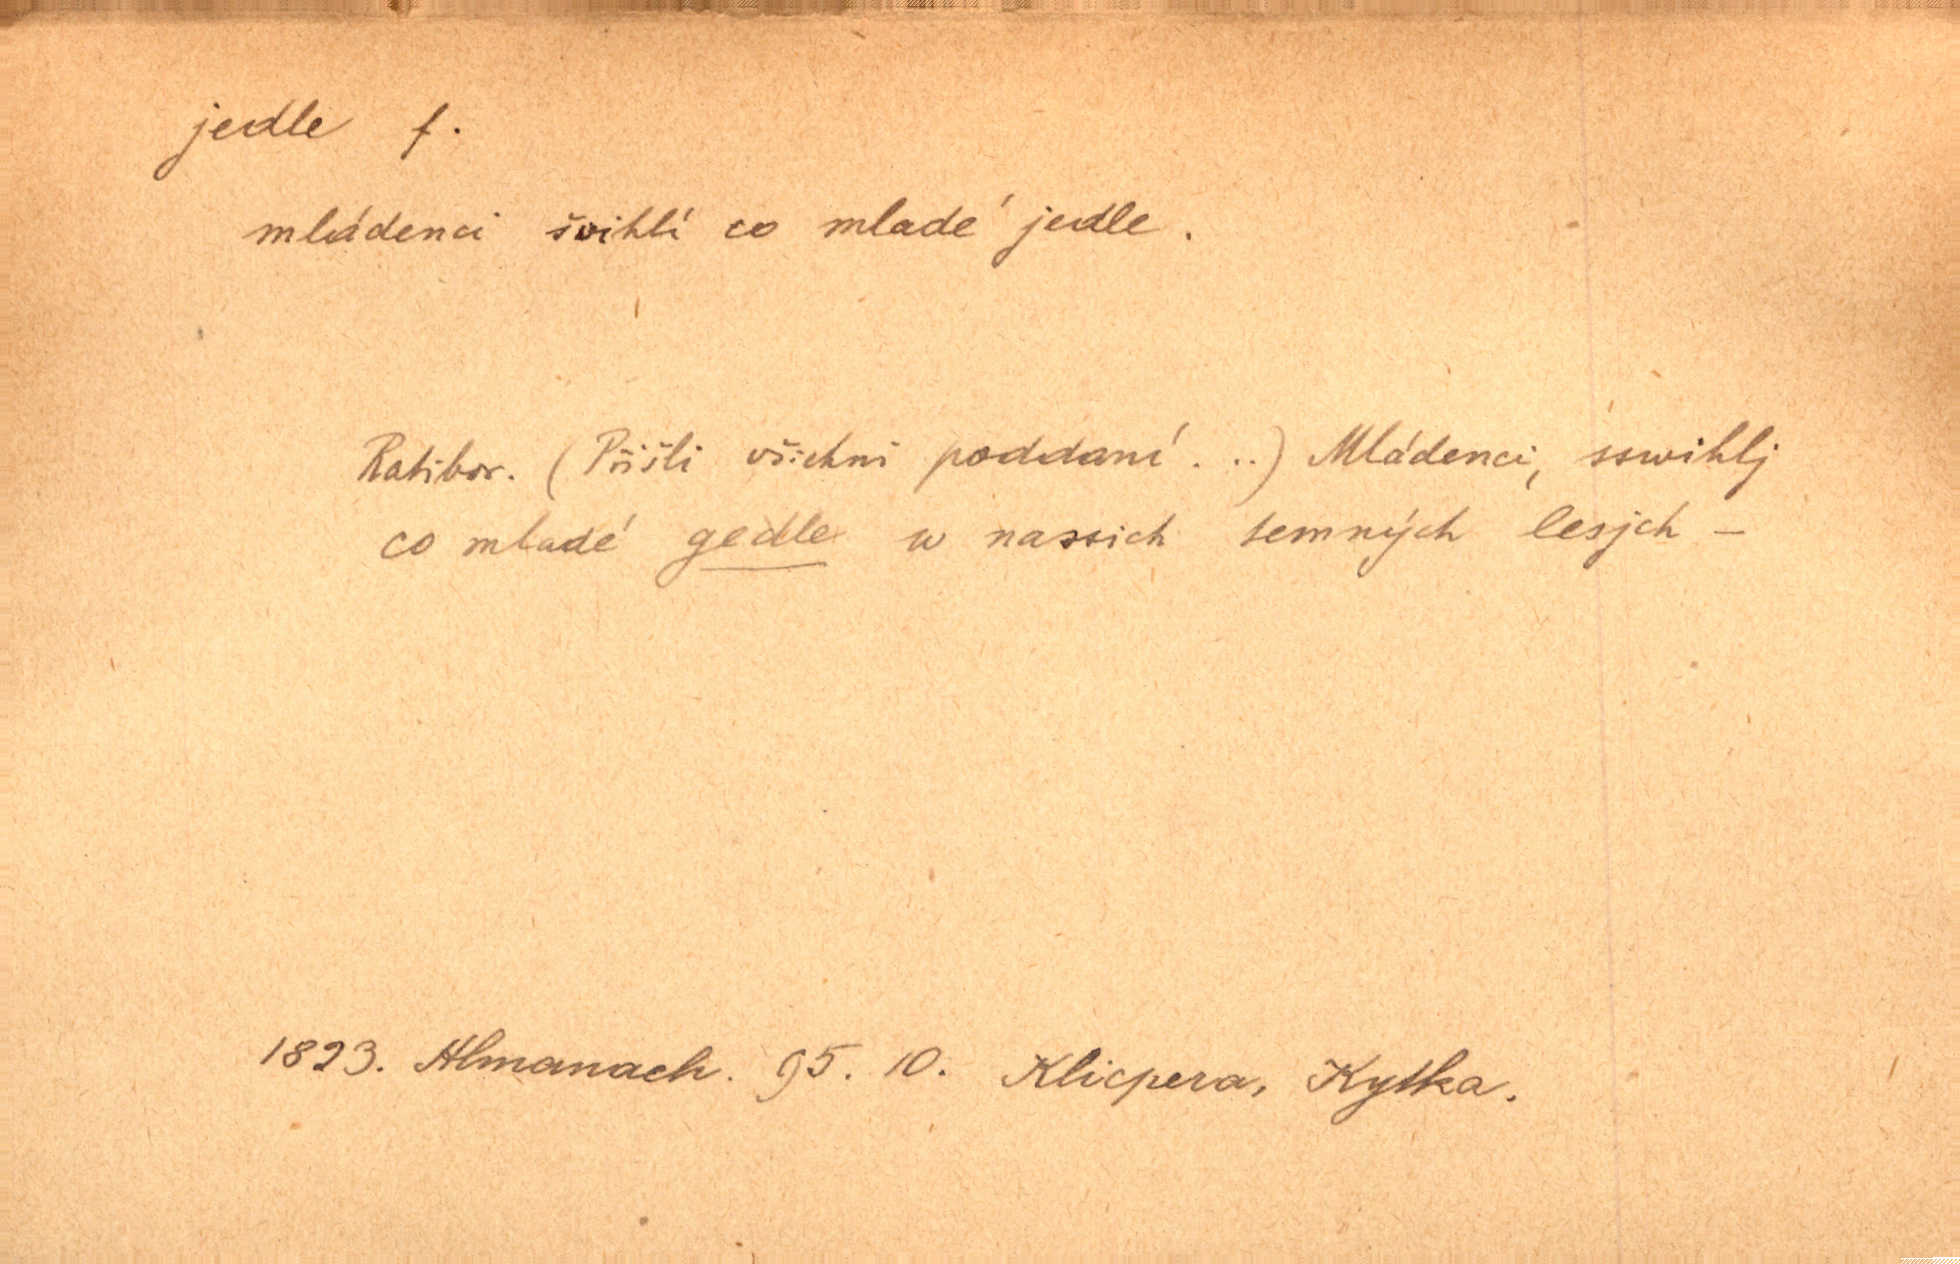 jedle f.
mládenci švihlí co mladé jedle.
Ratibor. (Přišli všichni poddaní...) Mládenci, sswihlj
co mladé gedle w nassich temných lesjch –
1823. Almanach. 95. 10. Klicpera, Kytka.